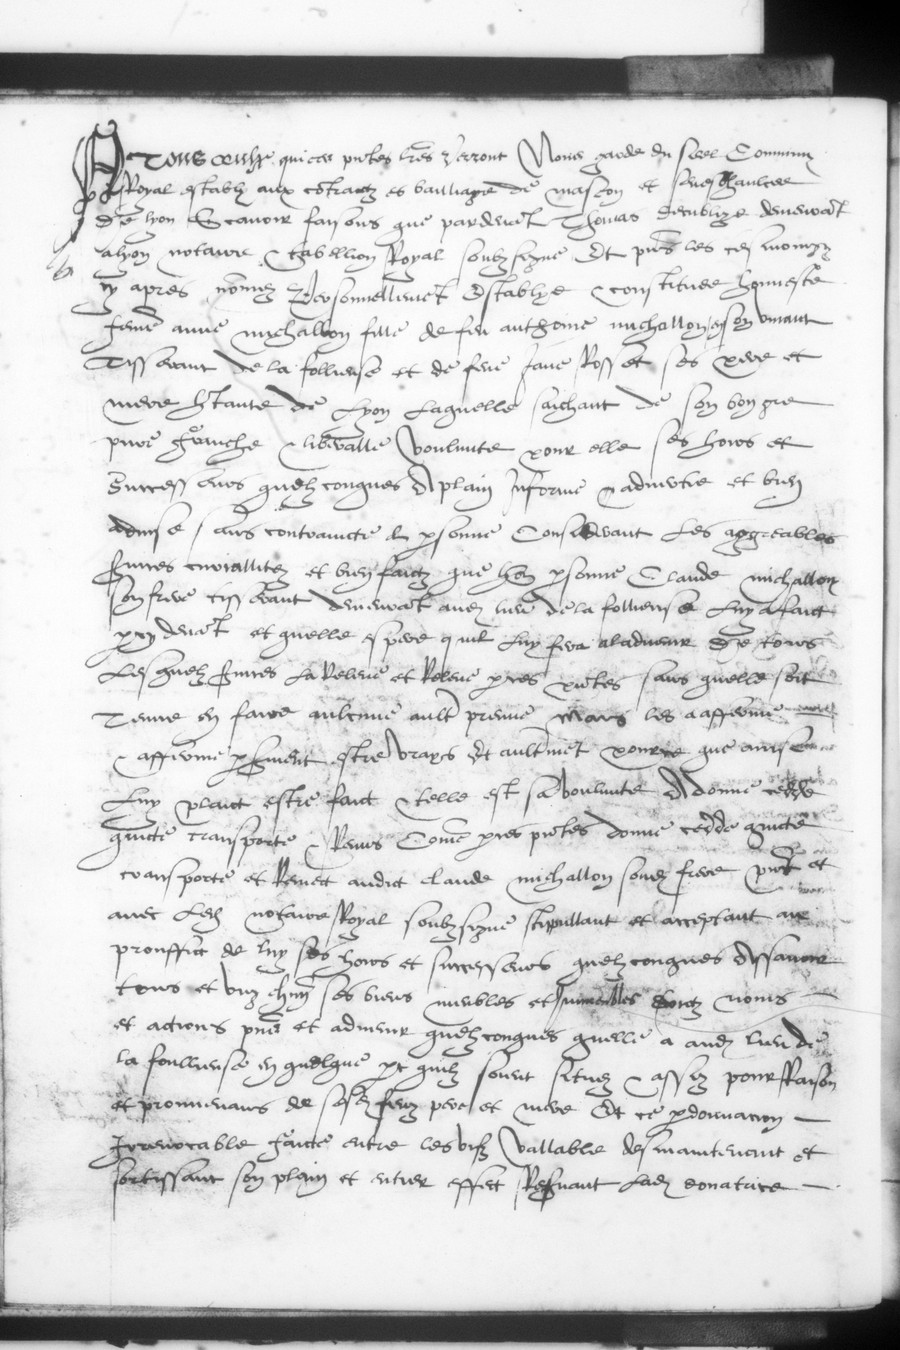 A Tous ceulx qui ces pntes lres verront Nous garde du seel Commun
Royal estably aux cõtractz es bailliage de mascon et seneschaulcee
de lyon Scavoir faisons que pardevãt Thomas demeurãt
a lyon notaire & tabellion Royal soubzsigne Et pns les tesmoingz
cy apres nõmez personnellemẽt establye & constituee honneste
feme anne michallon fille de feu anthoine michallon en son vivant
Tisserant de la follieuse et de feue Jane Rosset ses pere et
mere hitante de Lyon Laquelle saichant de son bon gre
pure franche & liberalle voulunte pour elle ses hoirs et
Successeurs quelzconques A plain Informee & advertie et bien
advisee sans contraincte de psonne Considerant Les aggreables
services curiallitez et bien faictz que hon psonne Claude michallon
son frere tisserant demeurãt aud lieu de la follieuse Luy a faict
p cy devãt et quelle espere quil luy fera a ladvenir De tous
Lesquelz services La Releve et Releve p ces pntes sans quelle soit
Tenue en faire aulcune ault preuve Mais les a afferme
& afferme psentemẽt estre vrays Et aultmẽt pource que ainsi
Luy plaict estre faict & telle est sa voulunte A donne cedde
quicte transporte & Remis Come p ces pntes donne cedde quicte
transporte et Remet audict Claude michallon sond frere pnt et
avec Led notaire Royal soubzsigne stipullant et acceptant au
prouffit de luy ses hoirs et successeurs quelzconques Assavoir
tous et ung chun ses biens meubles et immeubles droictz noms
et actions pns et advenir quelzconques quelle a aud lieu de
la foullieuse en quelque pt quilz soient situez & assis pour Raison
et provenans de sesd feuz pere et mere Et ce p donnacion
Irrevocable faicte entre les vifz vallable des maintenant et
sortissant son plain et entier effect Reservant Lad donatrice